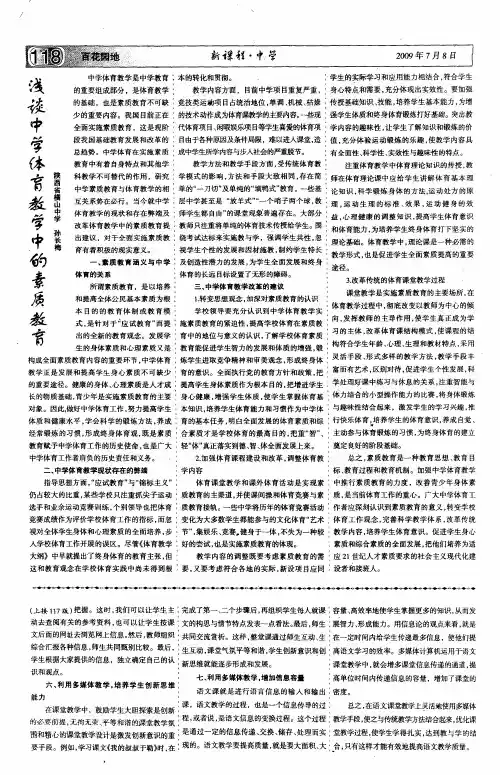 118
百花园地
新课程·中学
2009年7月8日
浅谈中学体育教学中的素质教育
陕西省横山中学 孙长梅
中学体育教学是中学教育
的重要组成部分，是体育教学
的基础，也是素质教育不可缺
少的重要内容。我国目前正在
全面实施素质教育，这是现阶
段我国基础教育发展和改革的
总趋势。中学体育在实施素质
教育中有着自身特点和其他学
科教学不可替代的作用。研究
中学素质教育与体育教学的相
互关系势在必行。当今就中学
体育教学的现状和存在弊端及
改革体育教学中的素质教育提
出建议，对于全面实施素质教
育有着积极的现实意义。
一、素质教育涵义与中学
体育的关系
所谓素质教育，是以培养
和提高全体公民基本素质为根
本目的的教育体制或教育模
式，是针对于“应试教育”而提
出的全新的教育观念。发展学
生的身体素质和心理素质又是
构成全面素质教育内容的重要环节，中学体育
教学正是发展和提高学生身心素质不可缺少
的重要途径。健康的身体、心理素质是人才成
长的物质基础，青少年是实施素质教育的主要
对象。因此，做好中学体育工作，努力提高学生
体质和健康水平，学会科学的锻炼方法，养成
经常锻炼的习惯，形成终身体育观，既是素质
教育赋予中学体育工作的历史使命，也是广大
中学体育工作者肩负的历史责任和义务。
二、中学体育教学现状存在的弊端
指导思想方面，“应试教育”与“锦标主义”
仍占较大的比重，某些学校只注重抓尖子运动
选手和业余运动竞赛训练，个别领导也把体育
竞赛成绩作为评价学校体育工作的指标，而忽
视对全体学生身体和心理素质的全面培养，步
入学校体育工作开展的误区。尽管《体育教学
大纲》中早就提出了终身体育的教育主张，但
这和教育观念在学校体育实践中尚未得到根
本的转化和贯彻。
教学内容方面，目前中学项目重复严重，
竞技类运动项目占统治地位，单调、机械、枯燥
的技术动作成为体育课教学的主要内容。一些现
代体育项目、闲暇娱乐项目等学生喜爱的体育项
目由于各种原因及条件局限，难以进入课堂，造
成中学生所学内容与步入社会的严重脱节。
教学方法和教学手段方面，受传统体育教
学模式的影响，方法和手段大致相同，存在简
单的“一刀切”及单纯的“填鸭式”教育。一些基
层中学甚至是“放羊式”“一个哨子两个球，教
师学生都自由”的课堂现象普遍存在。大部分
教师只注重将单纯的体育技术传授给学生。围
绕考试达标来实施教与学，强调学生共性，忽
视学生个性的发展和因材施教，制约学生特长
及创造性潜力的发展，为学生全面发展和终身
体育的长远目标设置了无形的障碍。
三、中学体育教学改革的建议
1.转变思想观念，加深对素质教育的认识
学校领导要充分认识到中学体育教学实
施素质教育的紧迫性，提高学校体育在素质教
育中的地位与意义的认识，了解学校体育素质
教育能促进学生智力的发展和体质的增强，锻
炼学生进取竞争精神和审美观念，形成终身体
育的意识。全面执行党的教育方针和政策，把
提高学生身体素质作为根本目的，把增进学生
身心健康，增强学生体质，使学生掌握体育基
本知识，培养学生体育能力和习惯作为中学体
育的基本任务，明白全面发展的体育素质和综
合素质才是学校体育的最高目的，把重“智”、
轻“体”真正落实到德、智、体全面发展上来。
2.加强体育课程建设和改革，调整体育教
学内容
体育课堂教学和课外体育活动是实现素
质教育的主渠道，并使课间操和体育竞赛与素
质教育接轨。一些中学将历年的体育竞赛活动
变化为大多数学生都能参与的文化体育“艺术
节”，集娱乐、竞赛、健身于一体，不失为一种较
好的尝试，也是实施素质教育的体现。
教学内容的调整既要考虑素质教育的需
要，又要考虑符合各地的实际，新设项目应同
学生的实际学习和应用能力相结合，符合学生
身心特点和需要，充分体现出实效性。要加强
传授基础知识、技能，培养学生基本能力，为增
强学生体质和终身体育锻炼打好基础。突出教
学内容的趣味性，让学生了解知识和锻炼的价
值，充分体验运动锻炼的乐趣，使教学内容具
有全面性、科学性、实效性与趣味性的特点。
注重体育教学中体育理论知识的传授，教
师在体育理论课中应给学生讲解体育基本理
论知识，科学锻炼身体的方法，运动处方的原
理，运动生理的标准、效果，运动健身的效
益，心理健康的调整知识，提高学生体育意识
和体育能力，为培养学生终身体育打下坚实的
理论基础。体育教学中，理论课是一种必需的
教学形式，也是促进学生全面素质提高的重要
途径。
3.改革传统的体育课堂教学过程
课堂教学是实施素质教育的主要场所，在
体育教学过程中，彻底改变以教师为中心的倾
向，发挥教师的主导作用，使学生真正成为学
习的主体，改革体育课结构模式，使课程的结
构符合学生年龄、心理、生理和教材特点，采用
灵活手段、形式多样的教学方法，教学手段丰
富而有艺术，区别对待，促进学生个性发展，科
学处理好课中练习与休息的关系，注重智能与
体力结合的小型操作能力的比赛，将身体锻炼
与趣味性结合起来，激发学生的学习兴趣，推
行快乐体育，培养学生的体育意识，养成自觉、
主动参与体育锻炼的习惯，为终身体育的建立
奠定良好的阶段基础。
总之，素质教育是一种教育思想、教育目
标、教育过程和教育机制。如强中学体育教学
中推行素质教育的力度，改善青少年身体素
质，是当前体育工作的重心。广大中学体育工
作者应深刻认识到素质教育的意义，转变学校
体育工作观念，完善科学教学体系，改革传统
教学内容，培养学生体育意识。促进学生身心
素质和综合素质的全面发展，把他们培养为适
应21世纪人才素质要求的社会主义现代化建
设者和接班人。
（上接117版）把握。这时，我们可以让学生主
动去查阅有关的参考资料，也可以让学生按课
文后面的网址去浏览网上信息，然后，教师组织
综合汇报各种信息，师生共同甄别比较。最后，
学生根据大家提供的信息，独立确定自己的认
识和观点。
六、利用多媒体教学，培养学生创新思维
能力
在课堂教学中，鼓励学生大胆探索是创新
的必要前提，无拘无束、平等和谐的课堂教学氛
围和精心的课堂教学设计是激发创新意识的重
要手段。例如，学习课文《我的叔叔于勒》时，在
完成了第一、二个步骤后，再组织学生每人就课
文的构思与情节特点发表一点看法。最后，师生
共同交流赏析。这样，整堂课通过师生互动、生
生互动，课堂气氛平等和谐，学生创新意识和创
新思维就能逐步形成和发展。
七、利用多媒体教学，增加信息容量
语文课就是进行语言信息的输入和输出
课，语文教学的过程，也是一个信息传导的过
程，或者说，是语文信息的变换过程。这个过程
是通过一定的信息传递、交换、储存、处理而实
现的。语文教学要提高质量，就是要大面积、大
容量、高效率地使学生掌握更多的知识，从而发
展智力，形成能力。用信息论的观点来看，就是
在一定时间内给学生传递最多信息，使他们提
高语文学习的效率。多媒体计算机运用于语文
课堂教学中，就会增多课堂信息传递的通道，提
高单位时间内传递信息的容量，增加了课堂的
密度。
总之，在语文课堂教学上灵活地使用多媒体
教学手段，使之与传统教学方法结合起来，优化课
堂教学过程，使学生学得扎实，达到教与学的结
合，只有这样才能有效地提高语文教学质量。